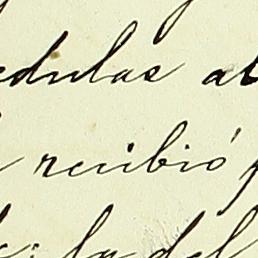 edulas al
recibió
la del